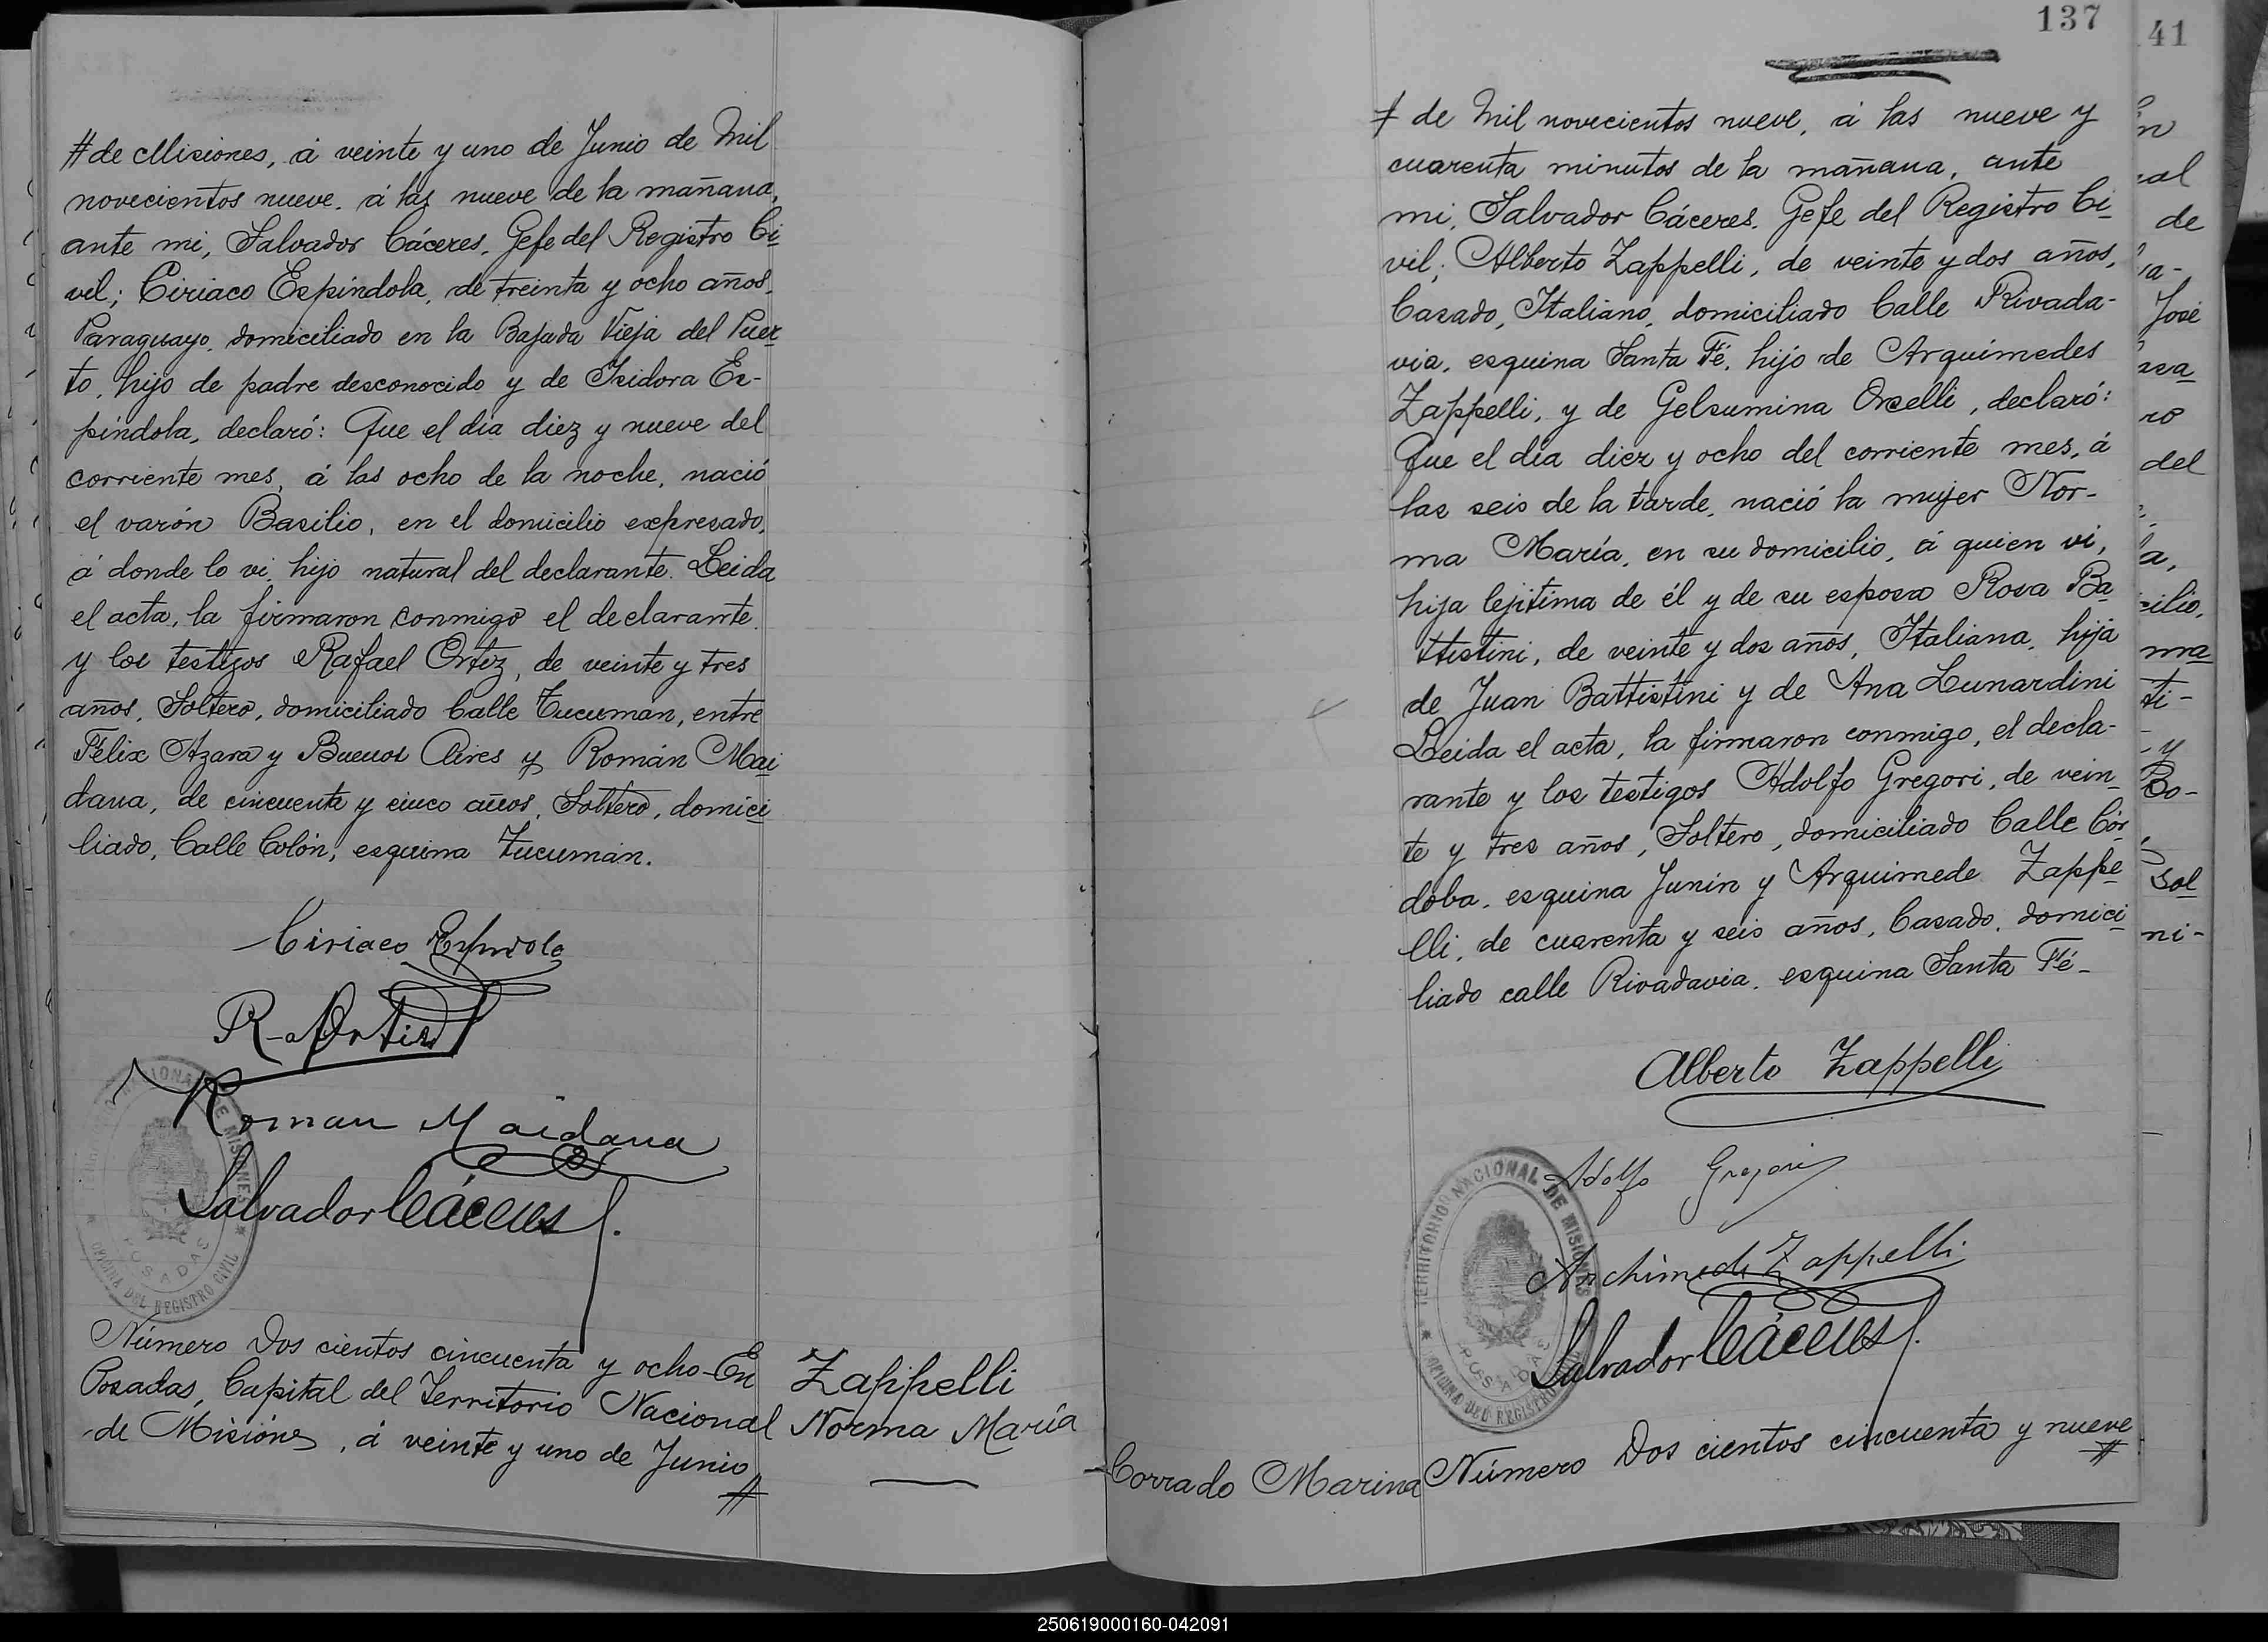 # de Misiones, á veinte y uno de Junio de Mil
novecientos nueve. á las nueve de la mañana,
ante mi, Salvador Cáceres. Gefe del Registro Ci
vil; Ciriaco Espíndola, de treinta y ocho años.
Paraguayo, domiciliado en la Bajada Vieja del Puer
to, hijo de padre desconocido y de Isidora Es-
píndola, declaró: Que el dia diez y nueve del
corriente mes, á las ocho de la noche, nació
el varón Basilio, en el domicilio expresado,
á donde lo vi, hijo natural del declarante. Leida
el acta, la firmaron conmigo el declarante.
y los testigos Rafael Ortiz, de veinte y tres
años, Soltero, domiciliado Calle Tucuman, entre
Félix Azara y Buenos Aires y Román Mai
dana, de cincuenta y cinco años, Soltero, domici
liado, Calle Colón, esquina Tucumán.
Ciriaco Espindola
R. Ortiz
Roman Maidana
Salvador Cáceres
TERRITORIO NACIONAL DE MISIONES
POSADAS
OFICINA DEL REGISTRO CIVIL
Número Dos cientos cincuenta y ocho-En
Posadas, Capital del Territorio Nacional
de Misiónes, á veinte y uno de Junio
#
Zappelli
Norma María
137
# de Mil novecientos nueve, á las nueve y
cuarenta minutos de la mañana, ante
mi, Salvador Cáceres. Gefe del Registro Ci
vil; Alberto Zappelli, de veinte y dos años,
Casado, Italiano, domiciliado Calle Rivada-
via, esquina Santa Fé, hijo de Arquímedes
Zappelli, y de Gelsumina Orselli, declaró:
Que el dia diez y ocho del corriente mes, á
las seis de la tarde, nació la mujer Nor-
ma María, en su domicilio, á quien vi,
hija lejitima de él y de su esposa Rosa Ba
ttistini, de veinte y dos años, Italiana, hija
de Juan Battistini y de Ana Lunardini
Leida el acta, la firmaron conmigo, el decla-
rante y los testigos Adolfo Gregori, de vein
te y tres años, Soltero, domiciliado Calle Cór
doba, esquina Junín y Arquimede Zappe
lli, de cuarenta y seis años, Casado, domici
liado calle Rivadavia, esquina Santa Fé-
Alberto Zappelli
Adolfo Gregori
Archimede Zappelli
Salvador Cáceres
TERRITORIO NACIONAL DE MISIONES
POSADAS
OFICINA DEL REGISTRO CIVIL
Corrado Marina
Número Dos cientos cincuenta y nueve
#
41
de
José
ro
del
a,
cilio,
ma
ti-
y
Bo-
sol
ni-
250619000160-042091